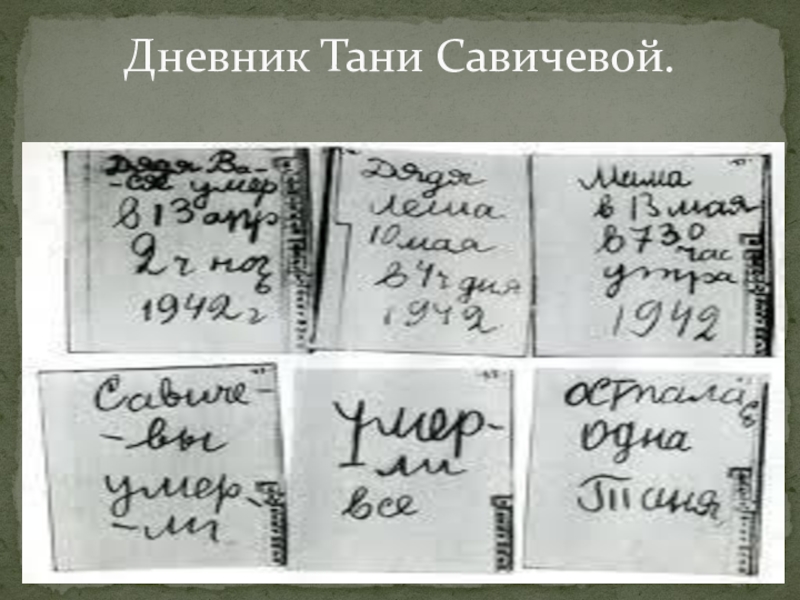 Дневник Тани Савичевой.
Дядя Ва-
-ся умер
в 13 апр
2 ч ноч
1942 г
Дядя
Леша
10 мая
в 4 ч дня
1942
Мама
в 13 мая
в 730
час
утра
1942
Савиче-
-вы
умер-
-ли
умер-
-ли
все
осталась
одна
Таня